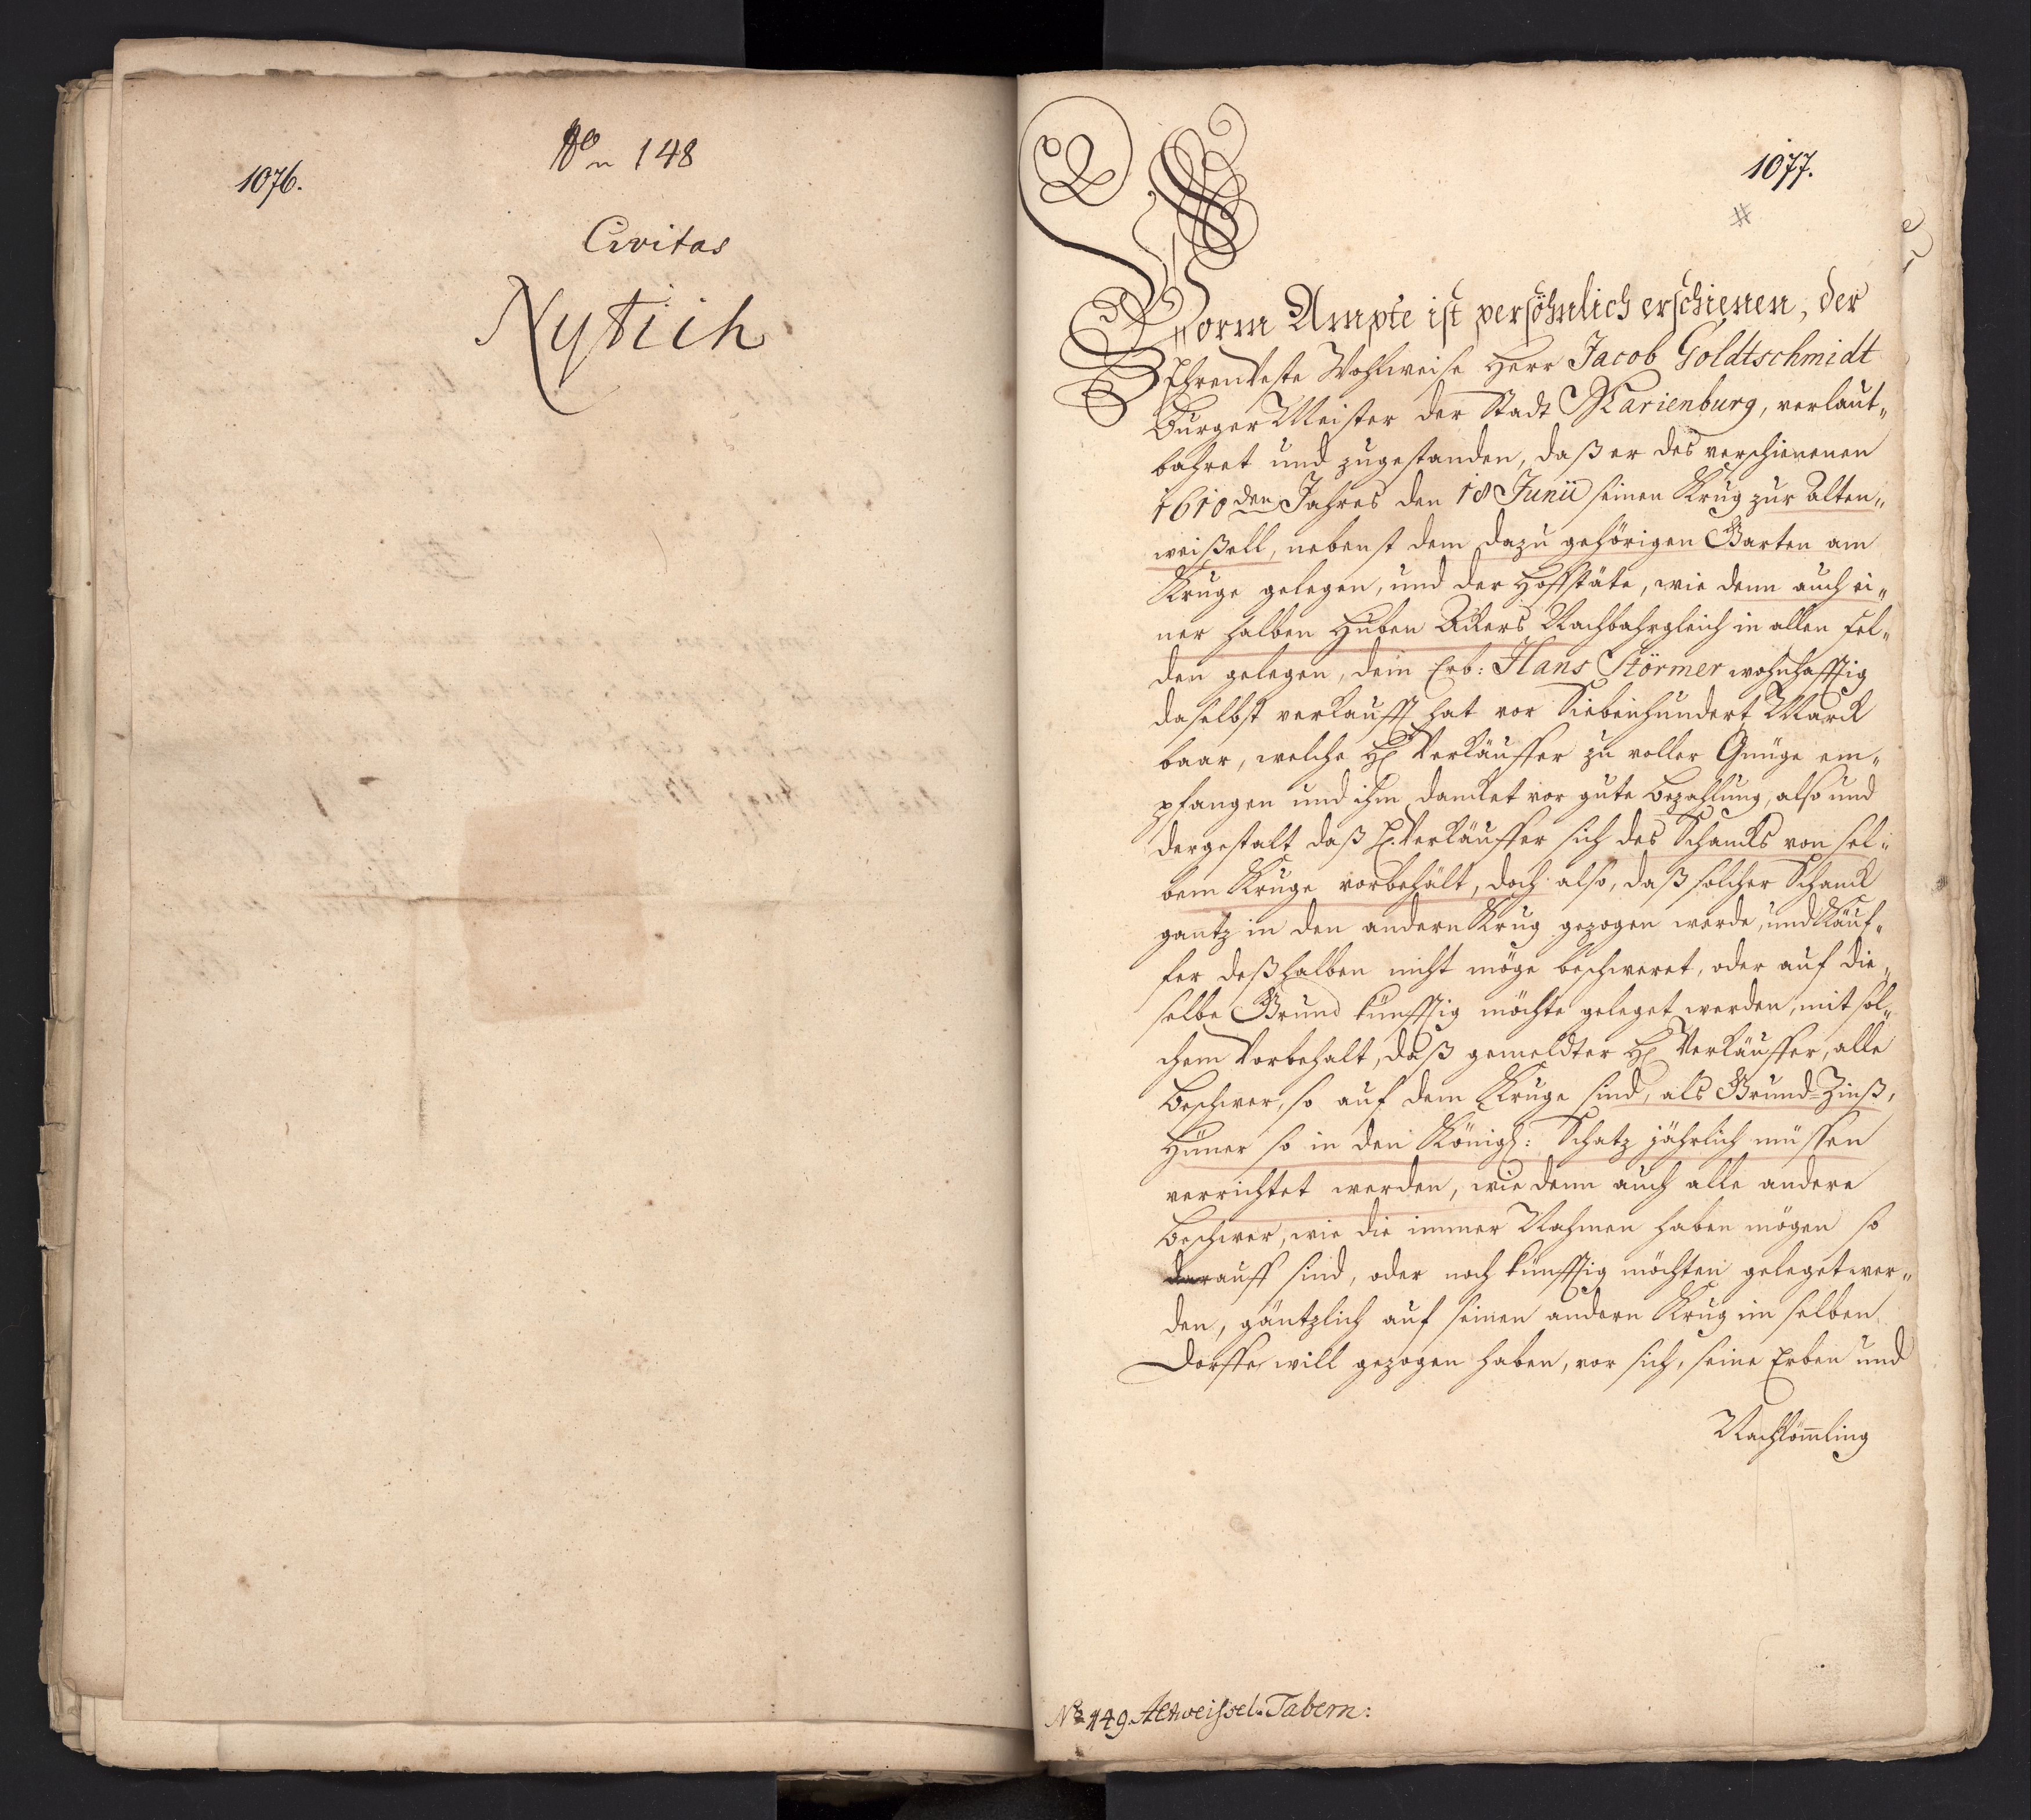 1076.
No 148
Civitas
Nytich
1077.
#
Vorm Ampte ist persöhnlich erschienen, der
Ehrenveste Wohlweise Herr Jacob Goldtschmidt
Burger Meister der Stadt Marienburg, verlaut„
bahret und zugestanden, daß er des verschienenen
1610den Jahres den 18 Junii seinen Krug zur Alten„
weißell, nebenst dem dazu gehörigen Garten am
Kruge gelegen, und der Hoffstäte, wie denn auch ei„
ner halben Huben Ackers Nachbahrgleich in allen Fel„
den gelegen, dem Erb: Hans Störmer wohnhafftig
daselbst verkaufft hat vor Siebenhundert Marck
baar, welche H. Verkäuffer zu voller Gnüge em„
pfangen und ihm dancket vor gute Bezahlung, also und
dergestalt daß H. Verkäuffer sich des Schancks von sel„
bem Kruge vorbehält, doch also, daß solcher Schanck
gantz in den andern Krug gezogen werde, und Käuf„
fer deßhalben nicht möge beschweret, oder auf die„
selbe Grund künfftig möchte geleget werden, mit sol„
chem Vorbehalt, daß gemeldter H. Verkäuffer, alle
Beschwer, so auf dem Kruge sind, als Grund-Zinß,
Hüner so in den Königl: Schatz jährlich müssen
verrichtet werden, wie denn auch alle andere
Beschwer, wie die immer Nahmen haben mögen so
darauff sind, oder noch künfftig möchten geleget wer„
den, gäntzlich auf seinen andern Krug im selben
Dorffe will gezogen haben, vor sich, seine Erben und
Nachkömling
No 149. Altweissel. Tabern: